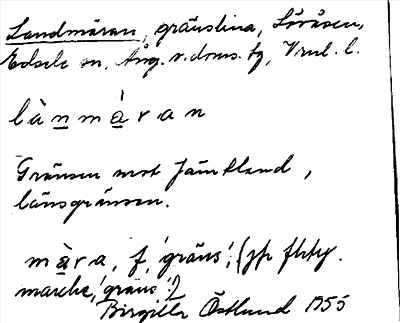 Landmäran, gränslina, Lövåsen,
Edsele sn, Ång. v. doms. tg, Vrml. l.
lànmàran
Gränsen mot Jämtland,
länsgränsen.
màra, f. 'gräns'; (jfr fhty.
marcha, 'gräns'?)
Birgitta Östlund 1955